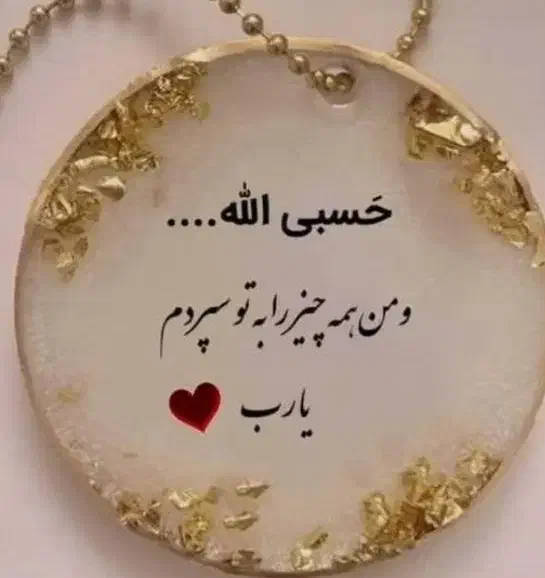 حَسبی الله....
و من همه چیز را به تو سپردم
یارب